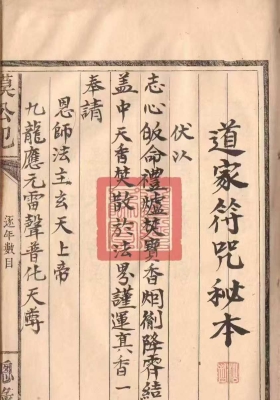 道家符咒秘本
伏以
志心皈命禮爐焚寶香烟衝降霄結
蓋中天香焚散於法界謹運真香一
奉請
恩師法主玄天上帝
九龍應元雷聲普化天尊
逐年數目